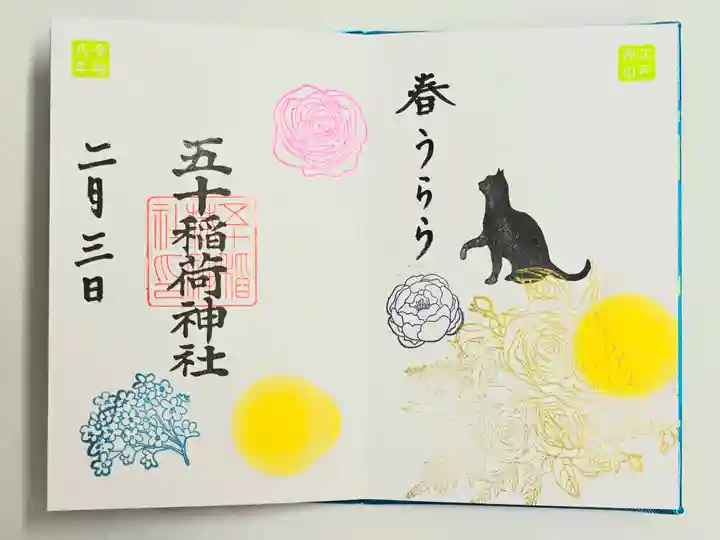 春うらら
五十稲荷神社
二月三日